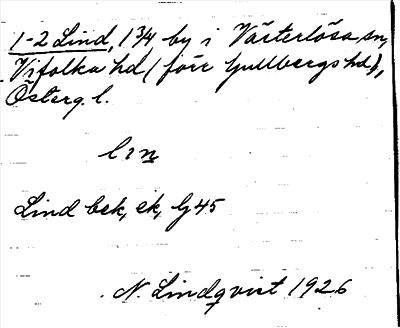 1-2 Lind, 1 3/4 by i Västerlösa sn,
Vifolka hd (förr Gullbergs hd),
Österg. l.
lın
Lind bek, ek, Lj 45
N. Lindqvist 1926